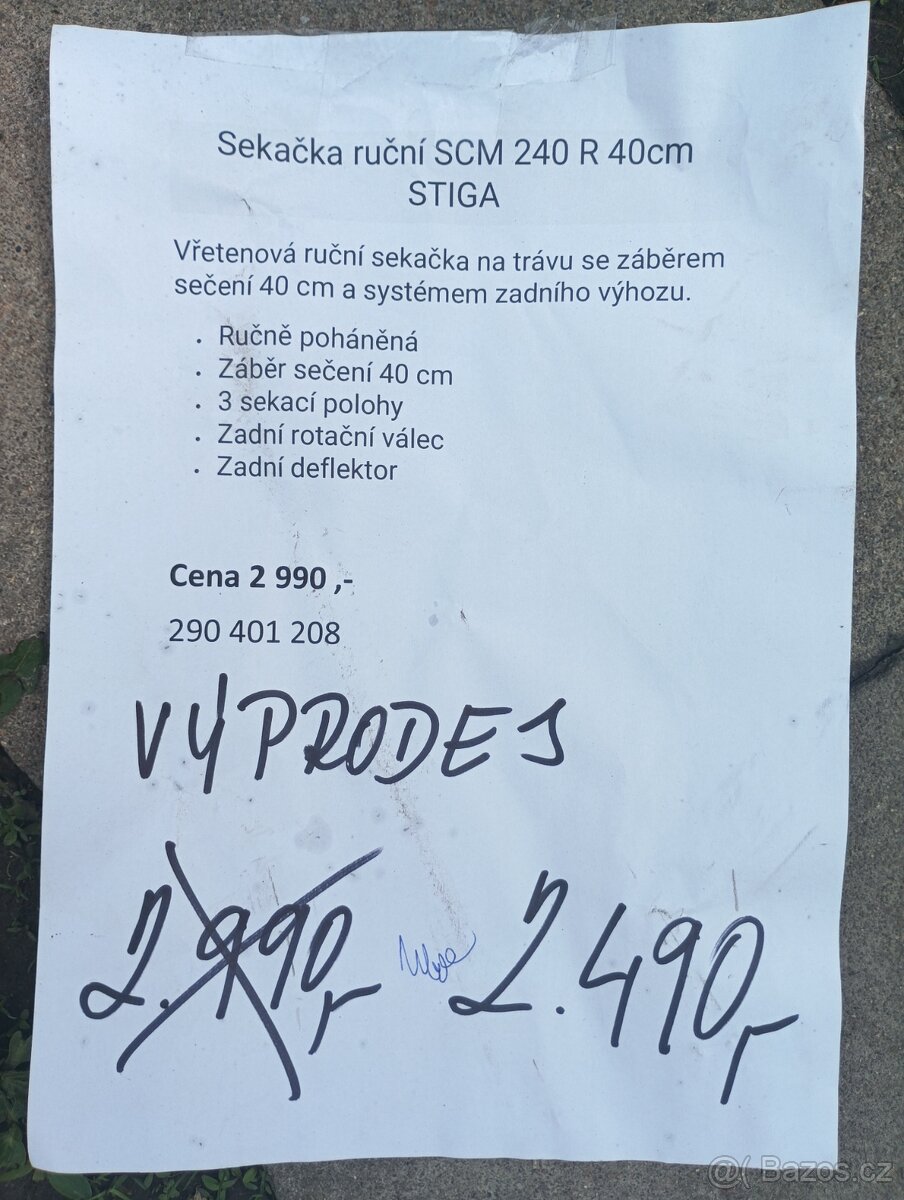 Sekačka ruční SCM 240 R 40cm
STIGA
Vřetenová ruční sekačka na trávu se záběrem
sečení 40 cm a systémem zadního výhozu.
• Ručně poháněná
• Záběr sečení 40 cm
• 3 sekací polohy
• Zadní rotační válec
• Zadní deflektor
Cena 2 990 ,-
290 401 208
VÝPRODEJ
2.990,- 2.490,-
@( Bazos.cz